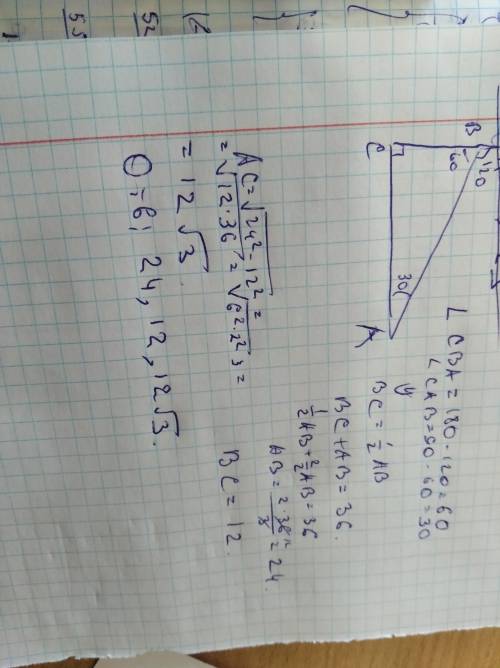 B
120
60
C
30
A
∠CBA = 180 - 120 = 60
∠CAB = 90 - 60 = 30
⇓
BC = 1/2 AB
BC + AB = 36.
1/2 AB + 2/2 AB = 36
AB = 2·36¹²/3 = 24.
BC = 12.
AC = √24² - 12² =
= √12·36 = √6²·2²3 =
= 12√3
О-в: 24, 12, 12√3.
52
55